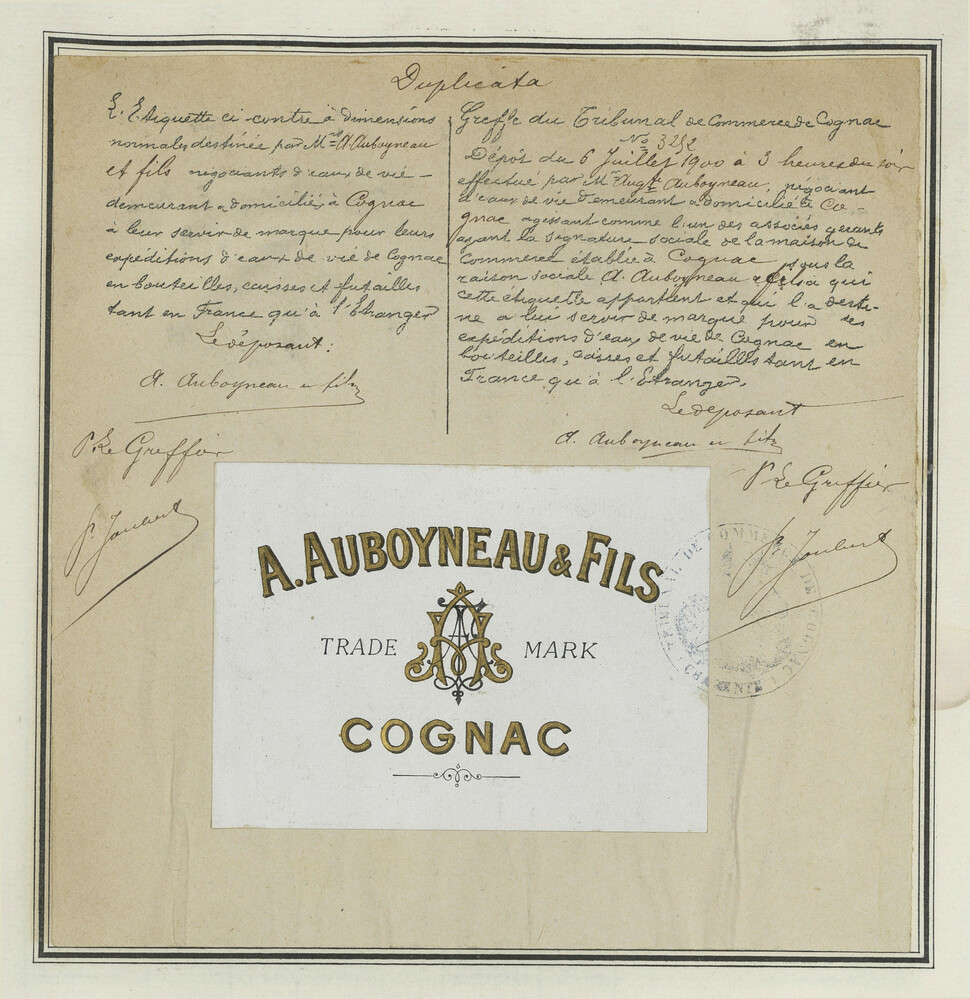 Duplicata
L'Etiquette ci-contre à dimensions
normales destinée par Mrs A. Auboyneau
et fils négociants d'eaux de vie -
demeurant & domiciliés à Cognac
à leur servir de marque pour leurs
expéditions d'eaux de vie de Cognac
en bouteilles, caisses et futailles
tant en France qu'à l'Etranger
Le déposant:
A. Auboyneau et fils
Le Greffier
P. Joubert
Greffe du Tribunal de Commerce de Cognac
No
Dépôt du 6 Juillet 1900 à 3 heures du soir
effectué par Mr Augte Auboyneau, négociant
d'eaux de vie demeurant & domicilié à Co-
gnac agissant comme l'un des associés gérants
ayant la signature sociale de la maison de
Commerce établie à Cognac sous la
raison sociale A. Auboyneau & fils à qui
cette étiquette appartient et qui l'a desti-
né à lui servir de marque pour ses
expéditions d'eaux de vie de Cognac en
bouteilles, caisses et futailles tant en
France qu'à l'Etranger.
Le déposant
A. Auboyneau et fils
Le Greffier
P. Joubert
A. AUBOYNEAU & FILS
TRADE MARK
COGNAC
TRIBUNAL DE COMMERCE DE COGNAC
(CHARENTE)